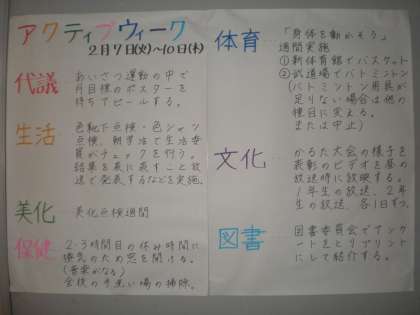 アクティブウィーク
2月7日(火)〜10日(木)
代議
あいさつ運動の中で
月目標のポスターを
持ちアピールする。
生活
色靴下点検・色シャツ
点検、朝学活で生活委
員がチェックを行う。
結果を表に表すこと放
送で発表するなどを実施。
美化
美化点検週間
保健
2・3時間目の休み時間に
換気のため窓を開ける。
(音楽がなる)
全校の手洗い場の掃除。
体育
「身体を動かそう」
週間実施
①新体育館でバスケット
②武道場でバトミントン
(バトミントン用具が
足りない場合は他の
種目に変える。
または中止)
文化
かるた大会の様子を
表彰のビデオを昼の
放送時に放映する。
1年生の放送、2年
生の放送、各1日ずつ。
図書
図書委員会でアンケ
ートをとりプリント
にして紹介する。